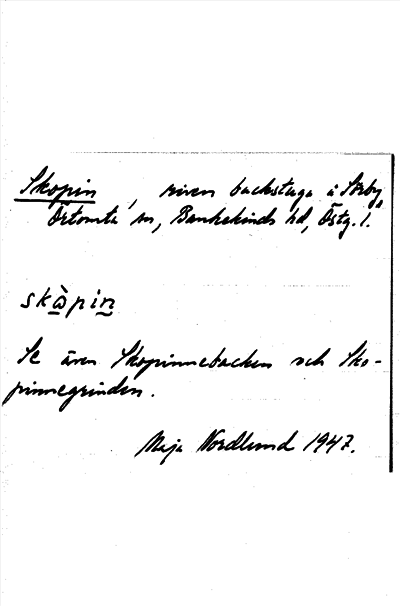 Skopin, riven backstuga å Törby,
Örtomta sn, Bankekinds hd, Östg. l.
skàpin
Se även Skopinnebacken och Sko-
pinnegrinden.
Maja Nordlund 1947.